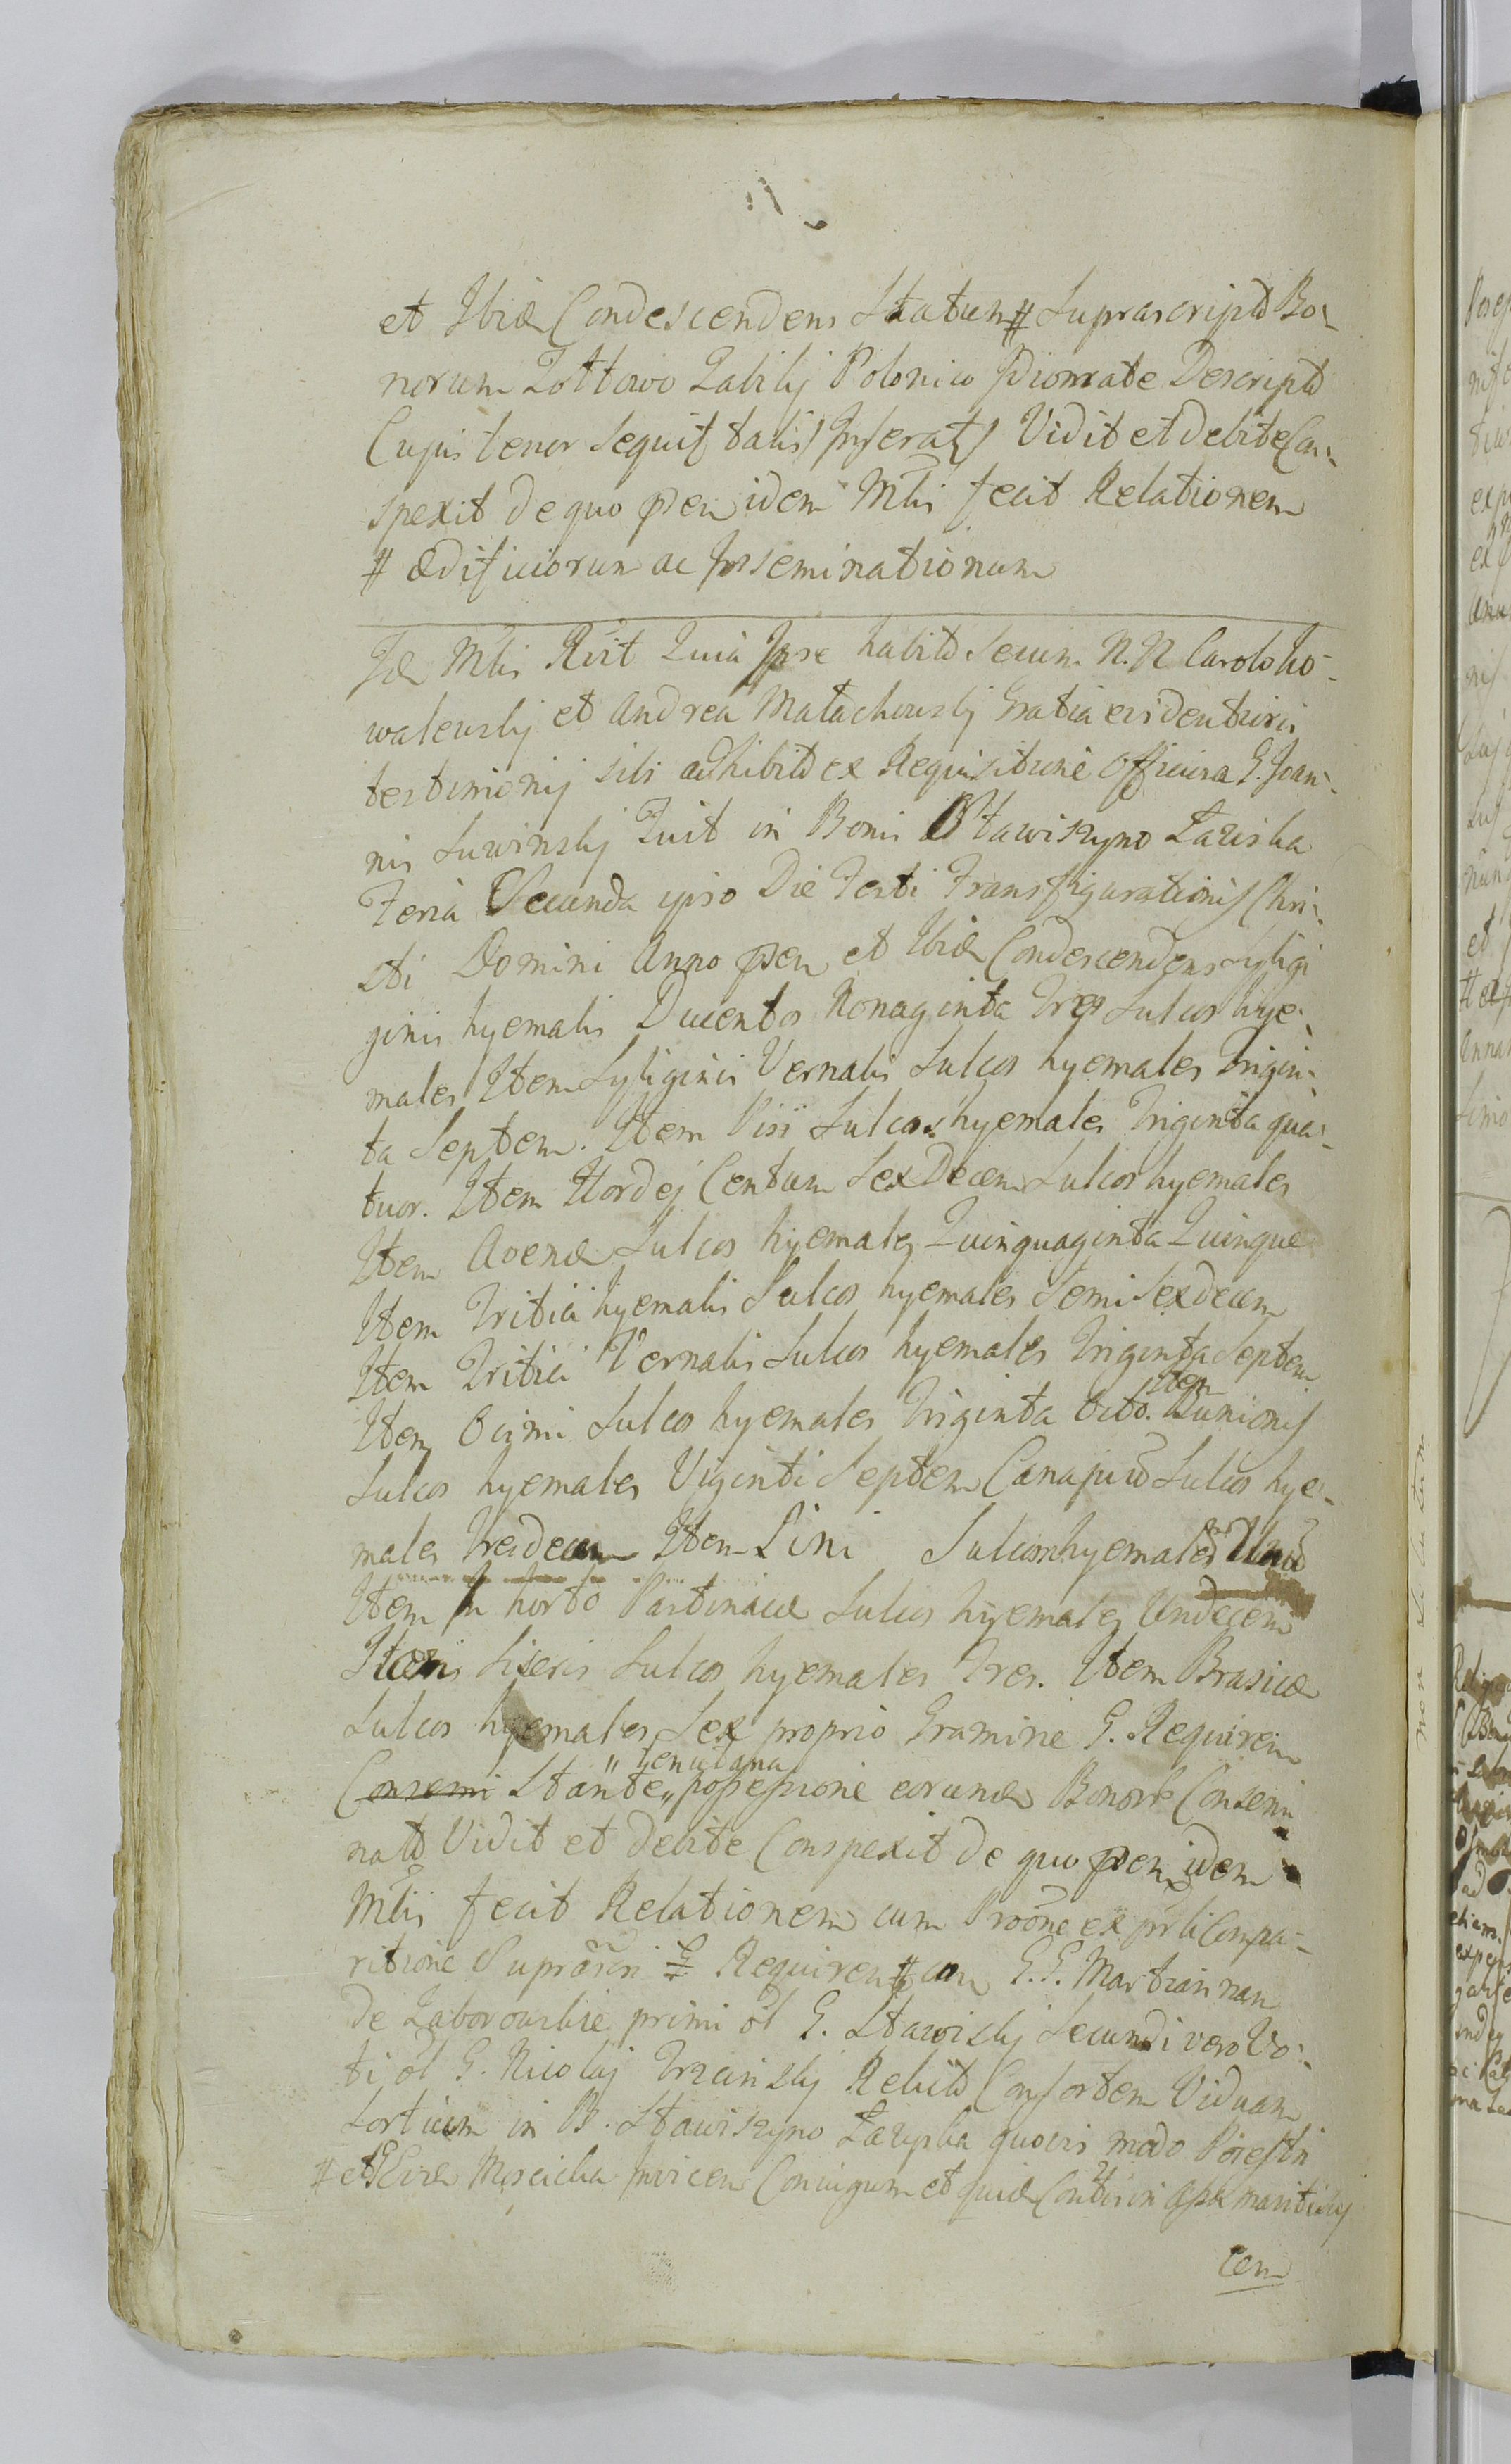 et Ibid Condescendens Statum # Suprascript Bo-
norum Zoltowo Polonico Descript
Cujus tenor sequit talis Inserat Vidit et debite Con-
spexit de quo psen idem Mlis fecit Relationem
# ædificiorum ac Inseminationum
Id Mlis Rvit Quia Ipse habit secum N. N. Carolo Ko-
walewskj et Andrea Malachowskj Gratia evidentioris
testimonij sibi adhibit ex Requisitione Officiosa G. Joan-
nis Suwinskj Fuit in Bonis Stawiszyno Laziska
Feria Secunda ipso Die Festi Transfigurationis Chri-
sti Domini Anno psen et Ibid Condescendens Syligi
ginis hyemalis Ducentos Nonaginta Tres Sulcos hye-
males Item Syliginis Vernalis Sulcos hyemales Trigin-
ta Septem. Item Pisi Sulcos hyemales Triginta qua-
tuor. Item Hordej Centum Sex Decem Sulcos hyemales
Item Avenæ Sulcos hyemales Quinquaginta Quinque
Item Tritici hyemalis Sulcos hyemales Semi Sexdecem
Item Tritici Vernalis Sulcos hyemales Triginta Septem
Item Ocimi Sulcos hyemales Triginta Octo. Item
Sulcos hyemales Viginti Septem Canapiu Sulcos hye-
males Tredecem Item Lini Sulcum hyemalem Unu
Item In horto Pastinacæ Sulcos hyemales Undecem
Item Siseris Sulcos hyemales Tres. Item Brasicæ
Sulcos hyemales Sex proprio Gramine G. Requiren
Consemi Stante " tenutana " possessione eorund Bonor Consemi
nat Vidit et debite Conspexit de quo psen idem
Mlis fecit Relationem cum Proone ex pnli Compa-
ritione Suprascri G Requiren # cum G. G. Martian nam
de Zaborowskie primi ol G. Stawiskj Secundi vero Vo-
ti ol G. Nicolaj Trzcinskj Relict Consortem Viduam
Sortium in B. Stawiszyno Lazyska quovis modo
# et Mscicha invicem Coniugum et quid
cem